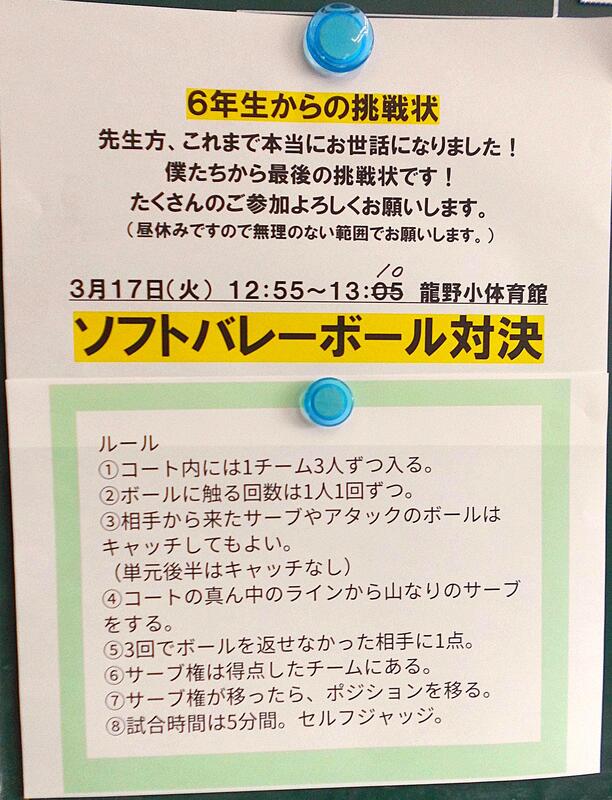 6年生からの挑戦状
先生方、これまで本当にお世話になりました！
僕たちから最後の挑戦状です！
たくさんのご参加よろしくお願いします。
（昼休みですので無理のない範囲でお願いします。）
10
3月17日（火） 12：55～13：05 龍野小体育館
ソフトバレーボール対決
ルール
①コート内には1チーム3人ずつ入る。
②ボールに触る回数は1人1回ずつ。
③相手から来たサーブやアタックのボールは
キャッチしてもよい。
（単元後半はキャッチなし）
④コートの真ん中のラインから山なりのサーブ
をする。
⑤3回でボールを返せなかった相手に1点。
⑥サーブ権は得点したチームにある。
⑦サーブ権が移ったら、ポジションを移る。
⑧試合時間は5分間。セルフジャッジ。